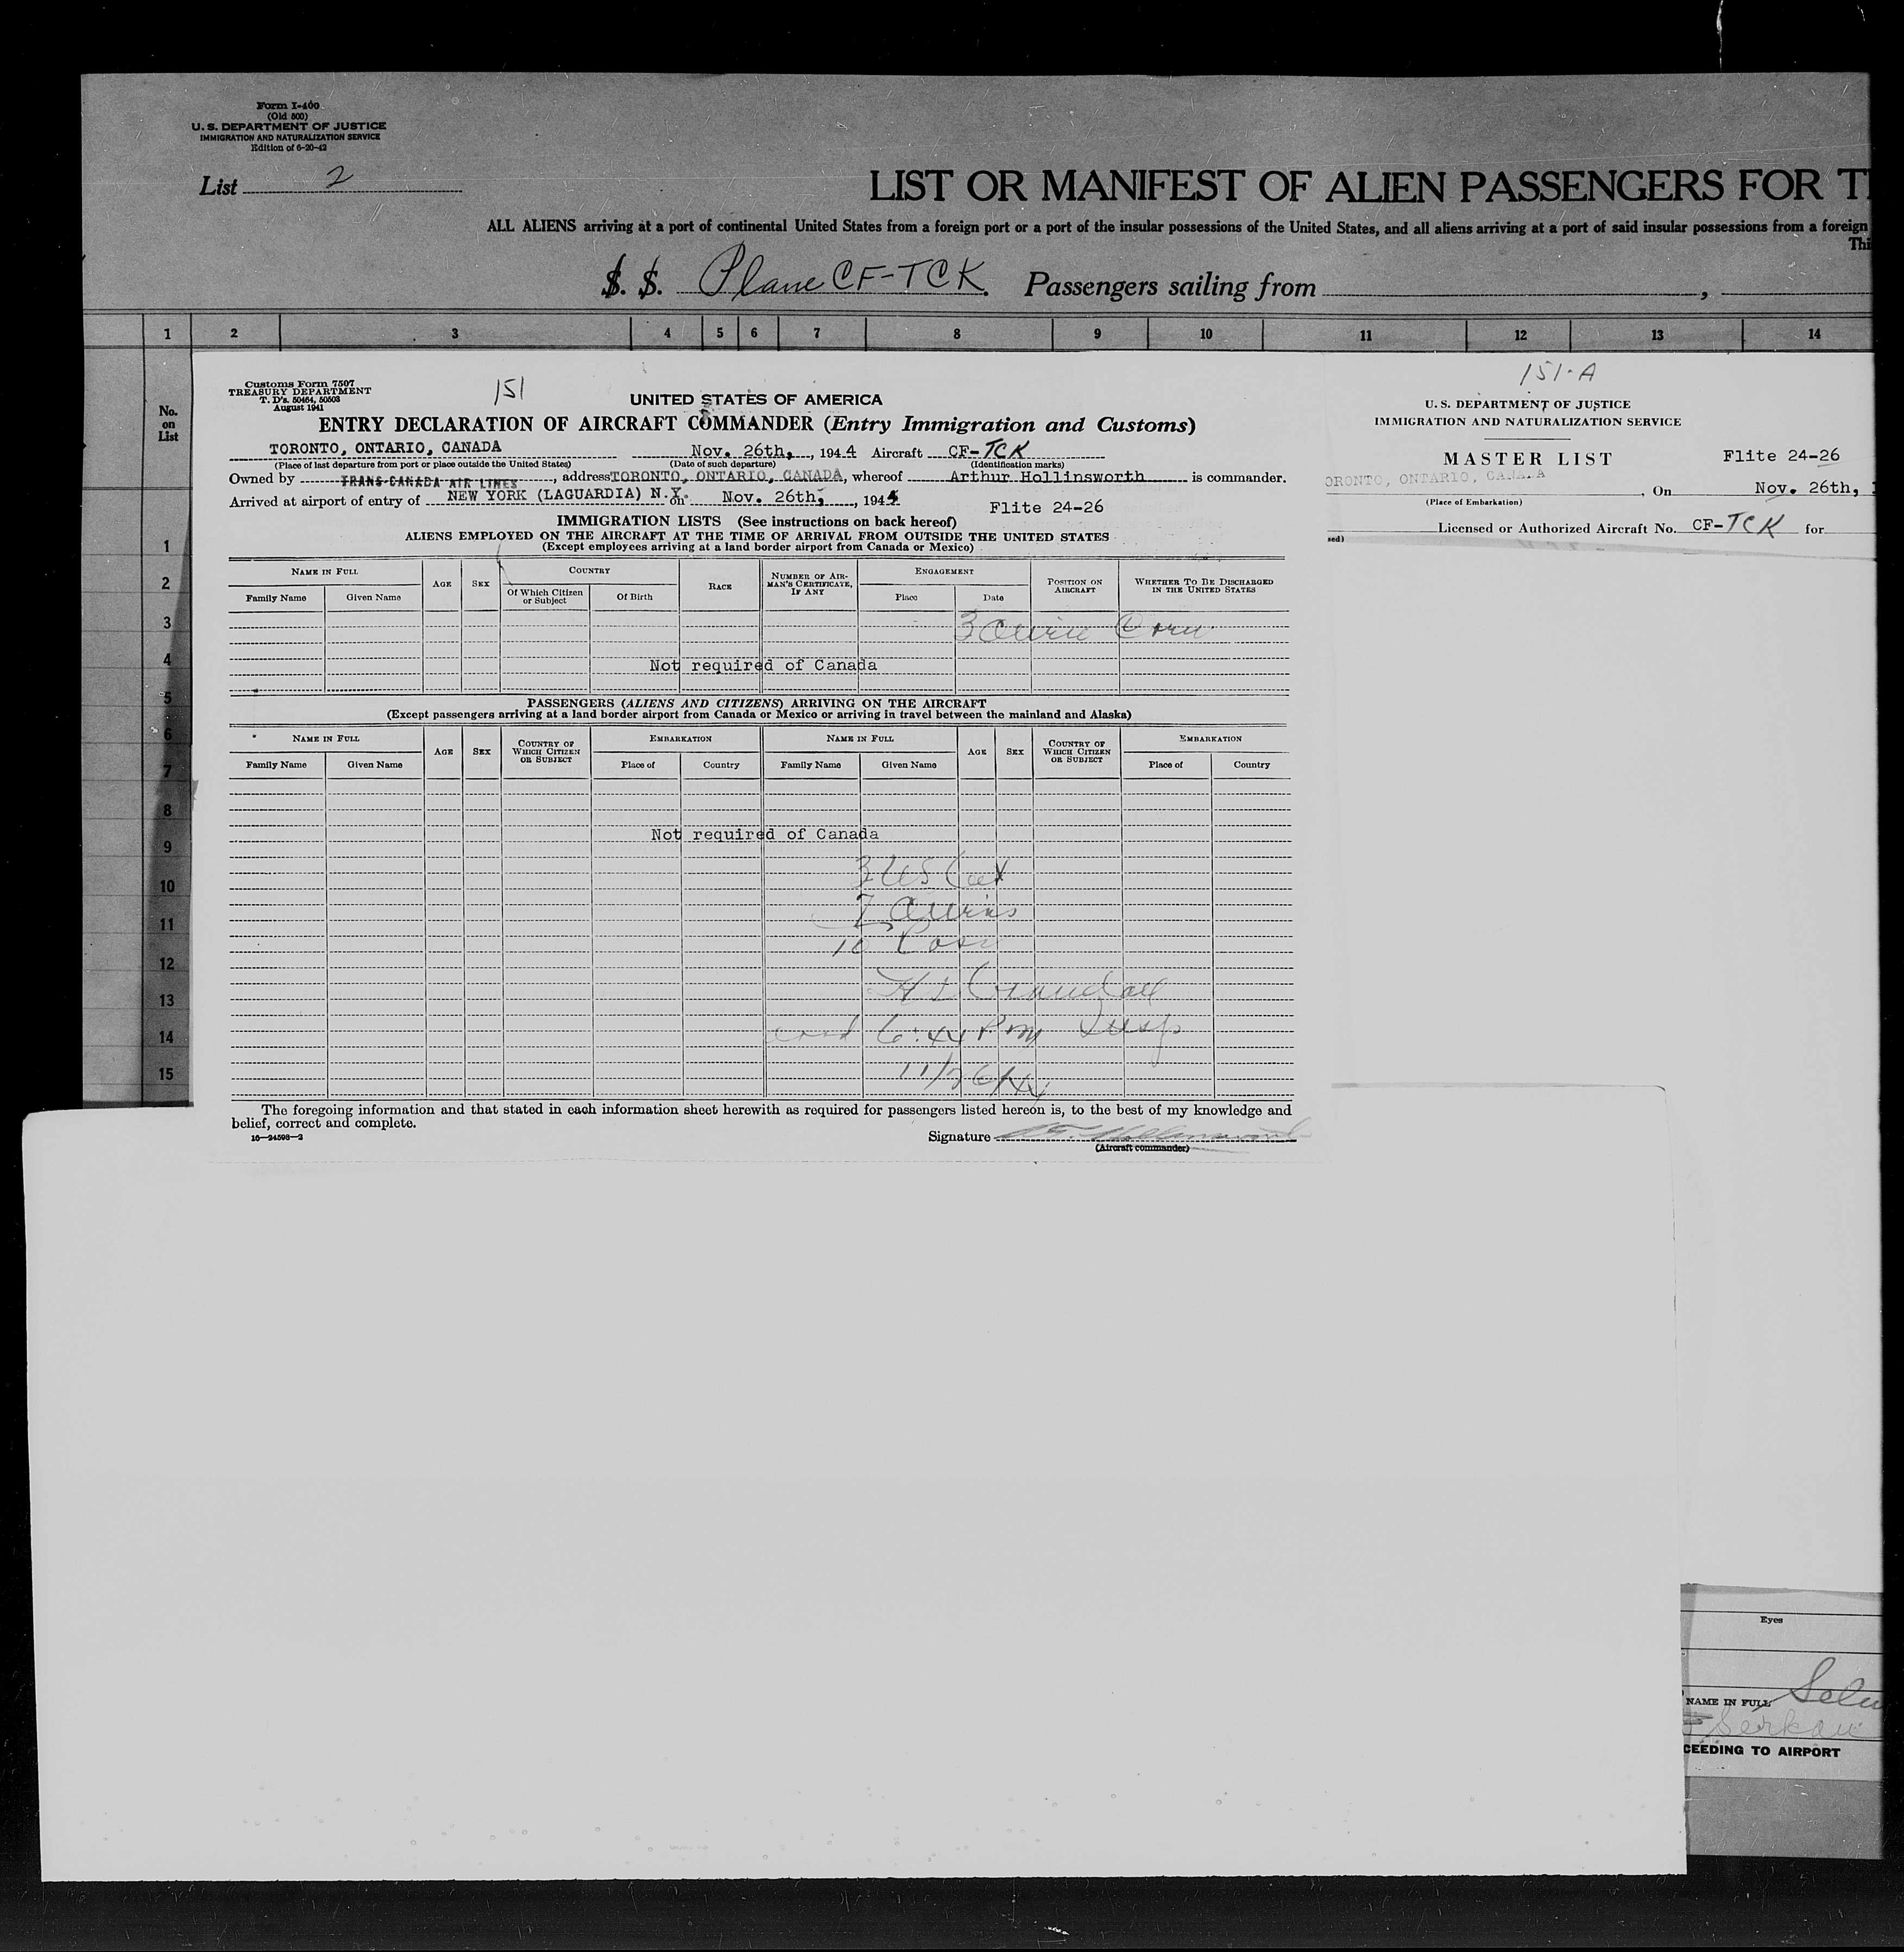 Form I-400
(Old 500)
U. S. DEPARTMENT OF JUSTICE
IMMIGRATION AND NATURALIZATION SERVICE
Edition of 6-20-42
List 2
LIST OR MANIFEST OF ALIEN PASSENGERS FOR T
ALL ALIENS arriving at a port of continental United States from a foreign port or a port of the insular possessions of the United States, and all aliens arriving at a port of said insular possessions from a foreign
Thi
S. S. Plane CF-TCK. Passengers sailing from ,
1 2 3 4 5 6 7 8 9 10 11 12 13 14
No.
on
List
1
2
3
4
5
6
7
8
9
10
11
12
13
14
15
Customs Form 7507
TREASURY DEPARTMENT
T. D's. 50464, 50503
August 1941
151
UNITED STATES OF AMERICA
ENTRY DECLARATION OF AIRCRAFT COMMANDER (Entry Immigration and Customs)
TORONTO, ONTARIO, CANADA Nov. 26th, , 1944 Aircraft CF-TCK
(Place of last departure from port or place outside the United States) (Date of such departure) (Identification marks)
Owned by TRANS-CANADA AIR LINES , address TORONTO, ONTARIO, CANADA, whereof Arthur Hollinsworth is commander.
Arrived at airport of entry of NEW YORK (LAGUARDIA) N.Y. on Nov. 26th, , 1944
Flite 24-26
IMMIGRATION LISTS (See instructions on back hereof)
ALIENS EMPLOYED ON THE AIRCRAFT AT THE TIME OF ARRIVAL FROM OUTSIDE THE UNITED STATES
(Except employees arriving at a land border airport from Canada or Mexico)
NAME IN FULL
Family Name Given Name
AGE
SEX
COUNTRY
Of Which Citizen or Subject
Of Birth
RACE
NUMBER OF AIRMAN'S CERTIFICATE, IF ANY
ENGAGEMENT
Place Date
POSITION ON AIRCRAFT
WHETHER TO BE DISCHARGED IN THE UNITED STATES
3
Not required of Canada
PASSENGERS (ALIENS AND CITIZENS) ARRIVING ON THE AIRCRAFT
(Except passengers arriving at a land border airport from Canada or Mexico or arriving in travel between the mainland and Alaska)
NAME IN FULL AGE SEX COUNTRY OF WHICH CITIZEN OR SUBJECT EMBARKATION NAME IN FULL AGE SEX COUNTRY OF WHICH CITIZEN OR SUBJECT EMBARKATION
Family Name Given Name Place of Country Family Name Given Name Place of Country
Not required of Canada
3 US
7
10
6:44 PM Insp
11/26/44
The foregoing information and that stated in each information sheet herewith as required for passengers listed hereon is, to the best of my knowledge and
belief, correct and complete.
16—24598—2
Signature
(Aircraft commander)
151-A
U. S. DEPARTMENT OF JUSTICE
IMMIGRATION AND NATURALIZATION SERVICE
MASTER LIST
Flite 24-26
ORONTO, ONTARIO, CANADA , On Nov. 26th,
(Place of Embarkation)
Licensed or Authorized Aircraft No. CF-TCK for
sed)
Eyes
NAME IN FULL
CEEDING TO AIRPORT